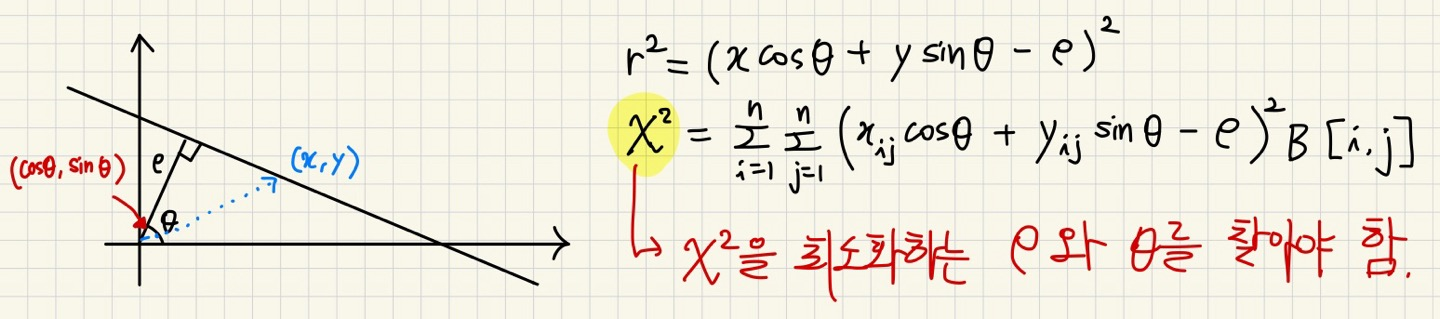 (cosθ, sinθ)
ρ
θ
(x, y)
r² = (x cosθ + y sinθ - ρ)²
χ² = Σ_{i=1}^{n} Σ_{j=1}^{n} (x_{ij} cosθ + y_{ij} sinθ - ρ)² B[i, j]
↳ χ²을 최소화하는 ρ와 θ를 찾아야 함.